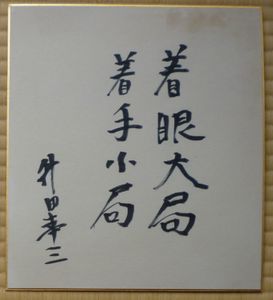 着眼大局
着手小局
升田幸三